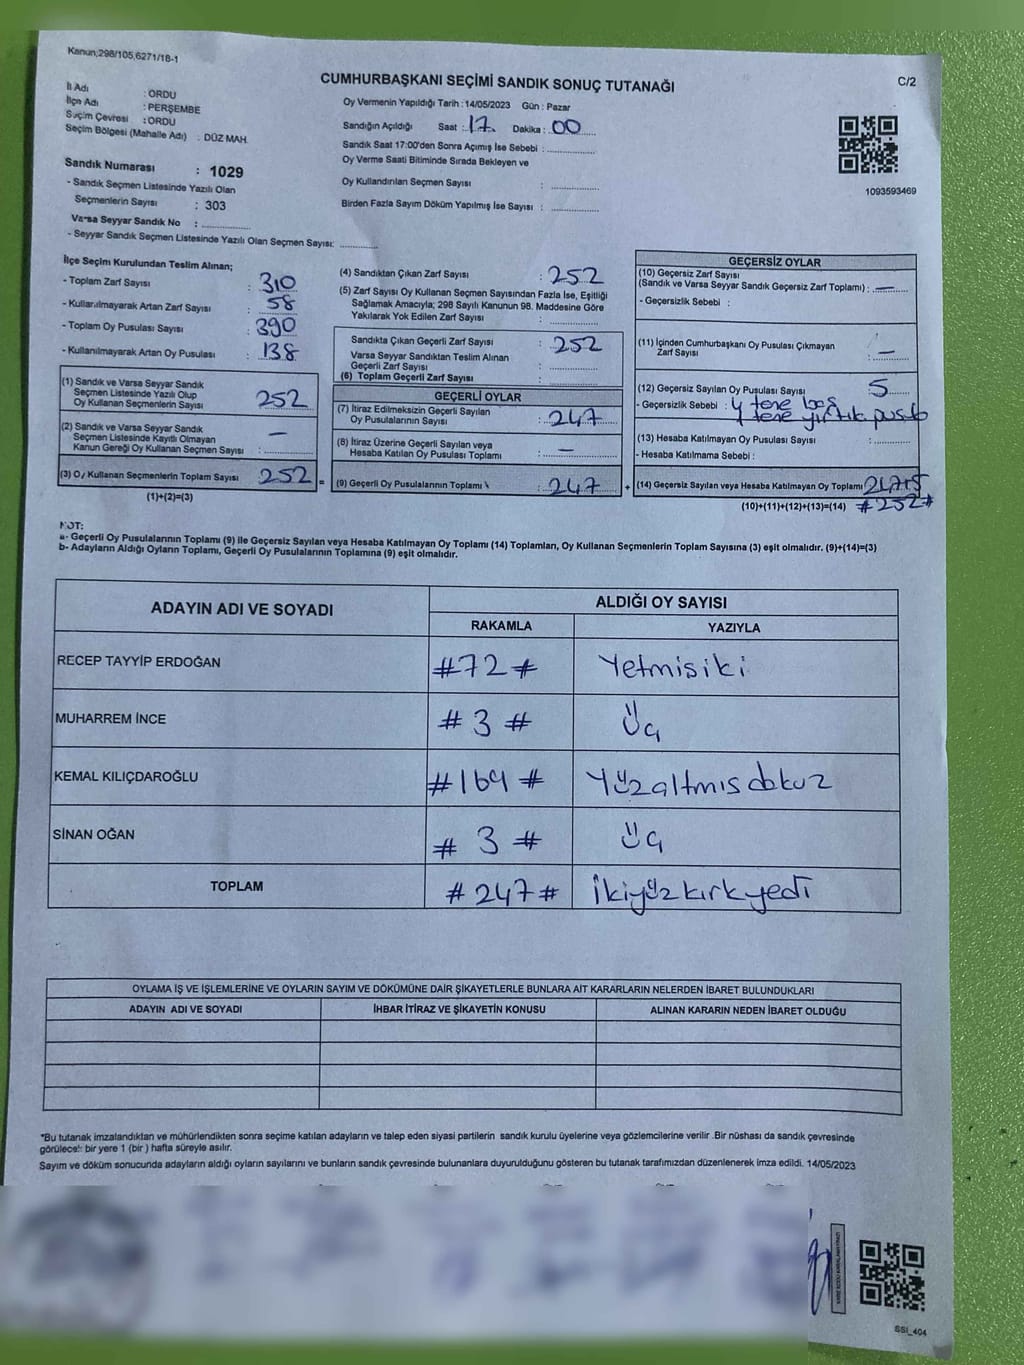 Kanun;298/105,6271/18-1
CUMHURBAŞKANI SEÇİMİ SANDIK SONUÇ TUTANAĞI
C/2
İl Adı : ORDU
İlçe Adı : PERŞEMBE
Seçim Çevresi : ORDU
Seçim Bölgesi (Mahalle Adı) : DÜZ MAH.
Oy Vermenin Yapıldığı Tarih : 14/05/2023 Gün : Pazar
Sandığın Açıldığı Saat : 17 Dakika : 00
Sandık Saat 17:00'den Sonra Açımış İse Sebebi :
Oy Verme Saati Bitiminde Sırada Bekleyen ve
Oy Kullandırılan Seçmen Sayısı :
Birden Fazla Sayım Döküm Yapılmış İse Sayısı :
1093593469
Sandık Numarası : 1029
- Sandık Seçmen Listesinde Yazılı Olan
Seçmenlerin Sayısı : 303
Varsa Seyyar Sandık No :
- Seyyar Sandık Seçmen Listesinde Yazılı Olan Seçmen Sayısı:
İlçe Seçim Kurulundan Teslim Alınan;
- Toplam Zarf Sayısı : 310
- Kullanılmayarak Artan Zarf Sayısı : 58
- Toplam Oy Pusulası Sayısı : 390
- Kullanılmayarak Artan Oy Pusulası : 138
(1) Sandık ve Varsa Seyyar Sandık
Seçmen Listesinde Yazılı Olup
Oy Kullanan Seçmenlerin Sayısı : 252
(2) Sandık ve Varsa Seyyar Sandık
Seçmen Listesinde Kayıtlı Olmayan
Kanun Gereği Oy Kullanan Seçmen Sayısı : —
(3) Oy Kullanan Seçmenlerin Toplam Sayısı 252 =
(1)+(2)=(3)
(4) Sandıktan Çıkan Zarf Sayısı : 252
(5) Zarf Sayısı Oy Kullanan Seçmen Sayısından Fazla İse, Eşitliği
Sağlamak Amacıyla; 298 Sayılı Kanunun 98. Maddesine Göre
Yakılarak Yok Edilen Zarf Sayısı :
Sandıkta Çıkan Geçerli Zarf Sayısı : 252
Varsa Seyyar Sandıktan Teslim Alınan
Geçerli Zarf Sayısı :
(6) Toplam Geçerli Zarf Sayısı :
GEÇERLİ OYLAR
(7) İtiraz Edilmeksizin Geçerli Sayılan
Oy Pusulalarının Sayısı : 247
(8) İtiraz Üzerine Geçerli Sayılan veya
Hesaba Katılan Oy Pusulası Toplamı : —
(9) Geçerli Oy Pusulalarının Toplamı : 247 +
GEÇERSİZ OYLAR
(10) Geçersiz Zarf Sayısı
(Sandık ve Varsa Seyyar Sandık Geçersiz Zarf Toplamı) : —
- Geçersizlik Sebebi :
(11) İçinden Cumhurbaşkanı Oy Pusulası Çıkmayan
Zarf Sayısı : —
(12) Geçersiz Sayılan Oy Pusulası Sayısı 5
- Geçersizlik Sebebi : 4 tene boş
1 tene yırtık pusula
(13) Hesaba Katılmayan Oy Pusulası Sayısı :
- Hesaba Katılmama Sebebi :
(14) Geçersiz Sayılan veya Hesaba Katılmayan Oy Toplamı 247+5
(10)+(11)+(12)+(13)=(14) #252#
NOT:
a- Geçerli Oy Pusulalarının Toplamı (9) ile Geçersiz Sayılan veya Hesaba Katılmayan Oy Toplamı (14) Toplamları, Oy Kullanan Seçmenlerin Toplam Sayısına (3) eşit olmalıdır. (9)+(14)=(3)
b- Adayların Aldığı Oyların Toplamı, Geçerli Oy Pusulalarının Toplamına (9) eşit olmalıdır.
ADAYIN ADI VE SOYADI
ALDIĞI OY SAYISI
RAKAMLA YAZIYLA
RECEP TAYYİP ERDOĞAN #72# Yetmisiki
MUHARREM İNCE #3# Üç
KEMAL KILIÇDAROĞLU #169# Yüzaltmıs dokuz
SİNAN OĞAN #3# Üç
TOPLAM #247# İkiyüz kırk yedi
OYLAMA İŞ VE İŞLEMLERİNE VE OYLARIN SAYIM VE DÖKÜMÜNE DAİR ŞİKAYETLERLE BUNLARA AİT KARARLARIN NELERDEN İBARET BULUNDUKLARI
ADAYIN ADI VE SOYADI İHBAR İTİRAZ VE ŞİKAYETİN KONUSU ALINAN KARARIN NEDEN İBARET OLDUĞU
*Bu tutanak imzalandıktan ve mühürlendikten sonra seçime katılan adayların ve talep eden siyasi partilerin sandık kurulu üyelerine veya gözlemcilerine verilir .Bir nüshası da sandık çevresinde
görülecek bir yere 1 (bir ) hafta süreyle asılır.
Sayım ve döküm sonucunda adayların aldığı oyların sayılarını ve bunların sandık çevresinde bulunanlara duyurulduğunu gösteren bu tutanak tarafımızdan düzenlenerek imza edildi. 14/05/2023
SSİ_404